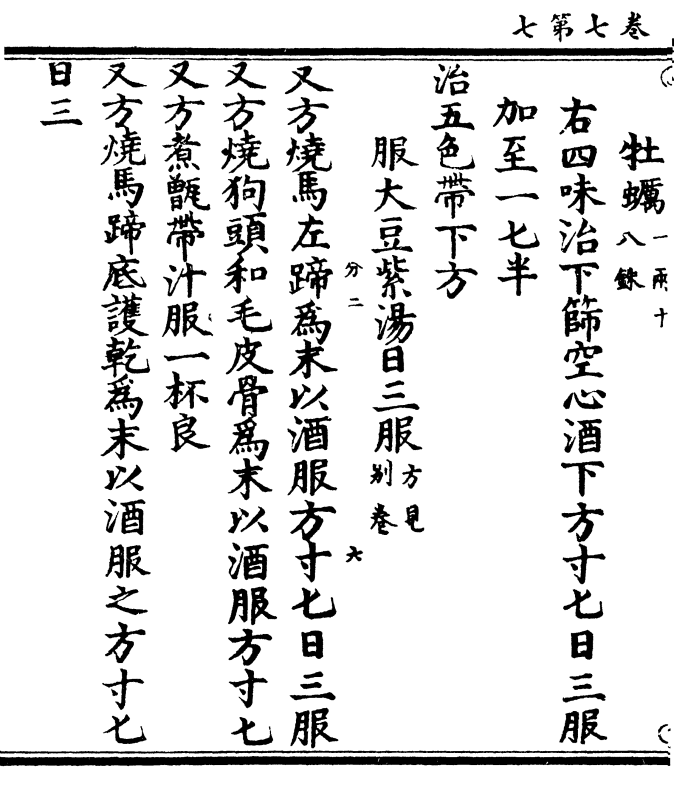 卷七第七
牡蠣一兩十八銖
右四味治下篩空心酒下方寸七日三服
加至一七半
治五色帶下方
服大豆紫湯日三服方見别卷
分二
六
又方燒馬左蹄爲末以酒服方寸七日三服
又方燒狗頭和毛皮骨爲末以酒服方寸七
又方煮甑帶汁服一杯良
又方燒馬蹄底護乾爲末以酒服之方寸七
日三